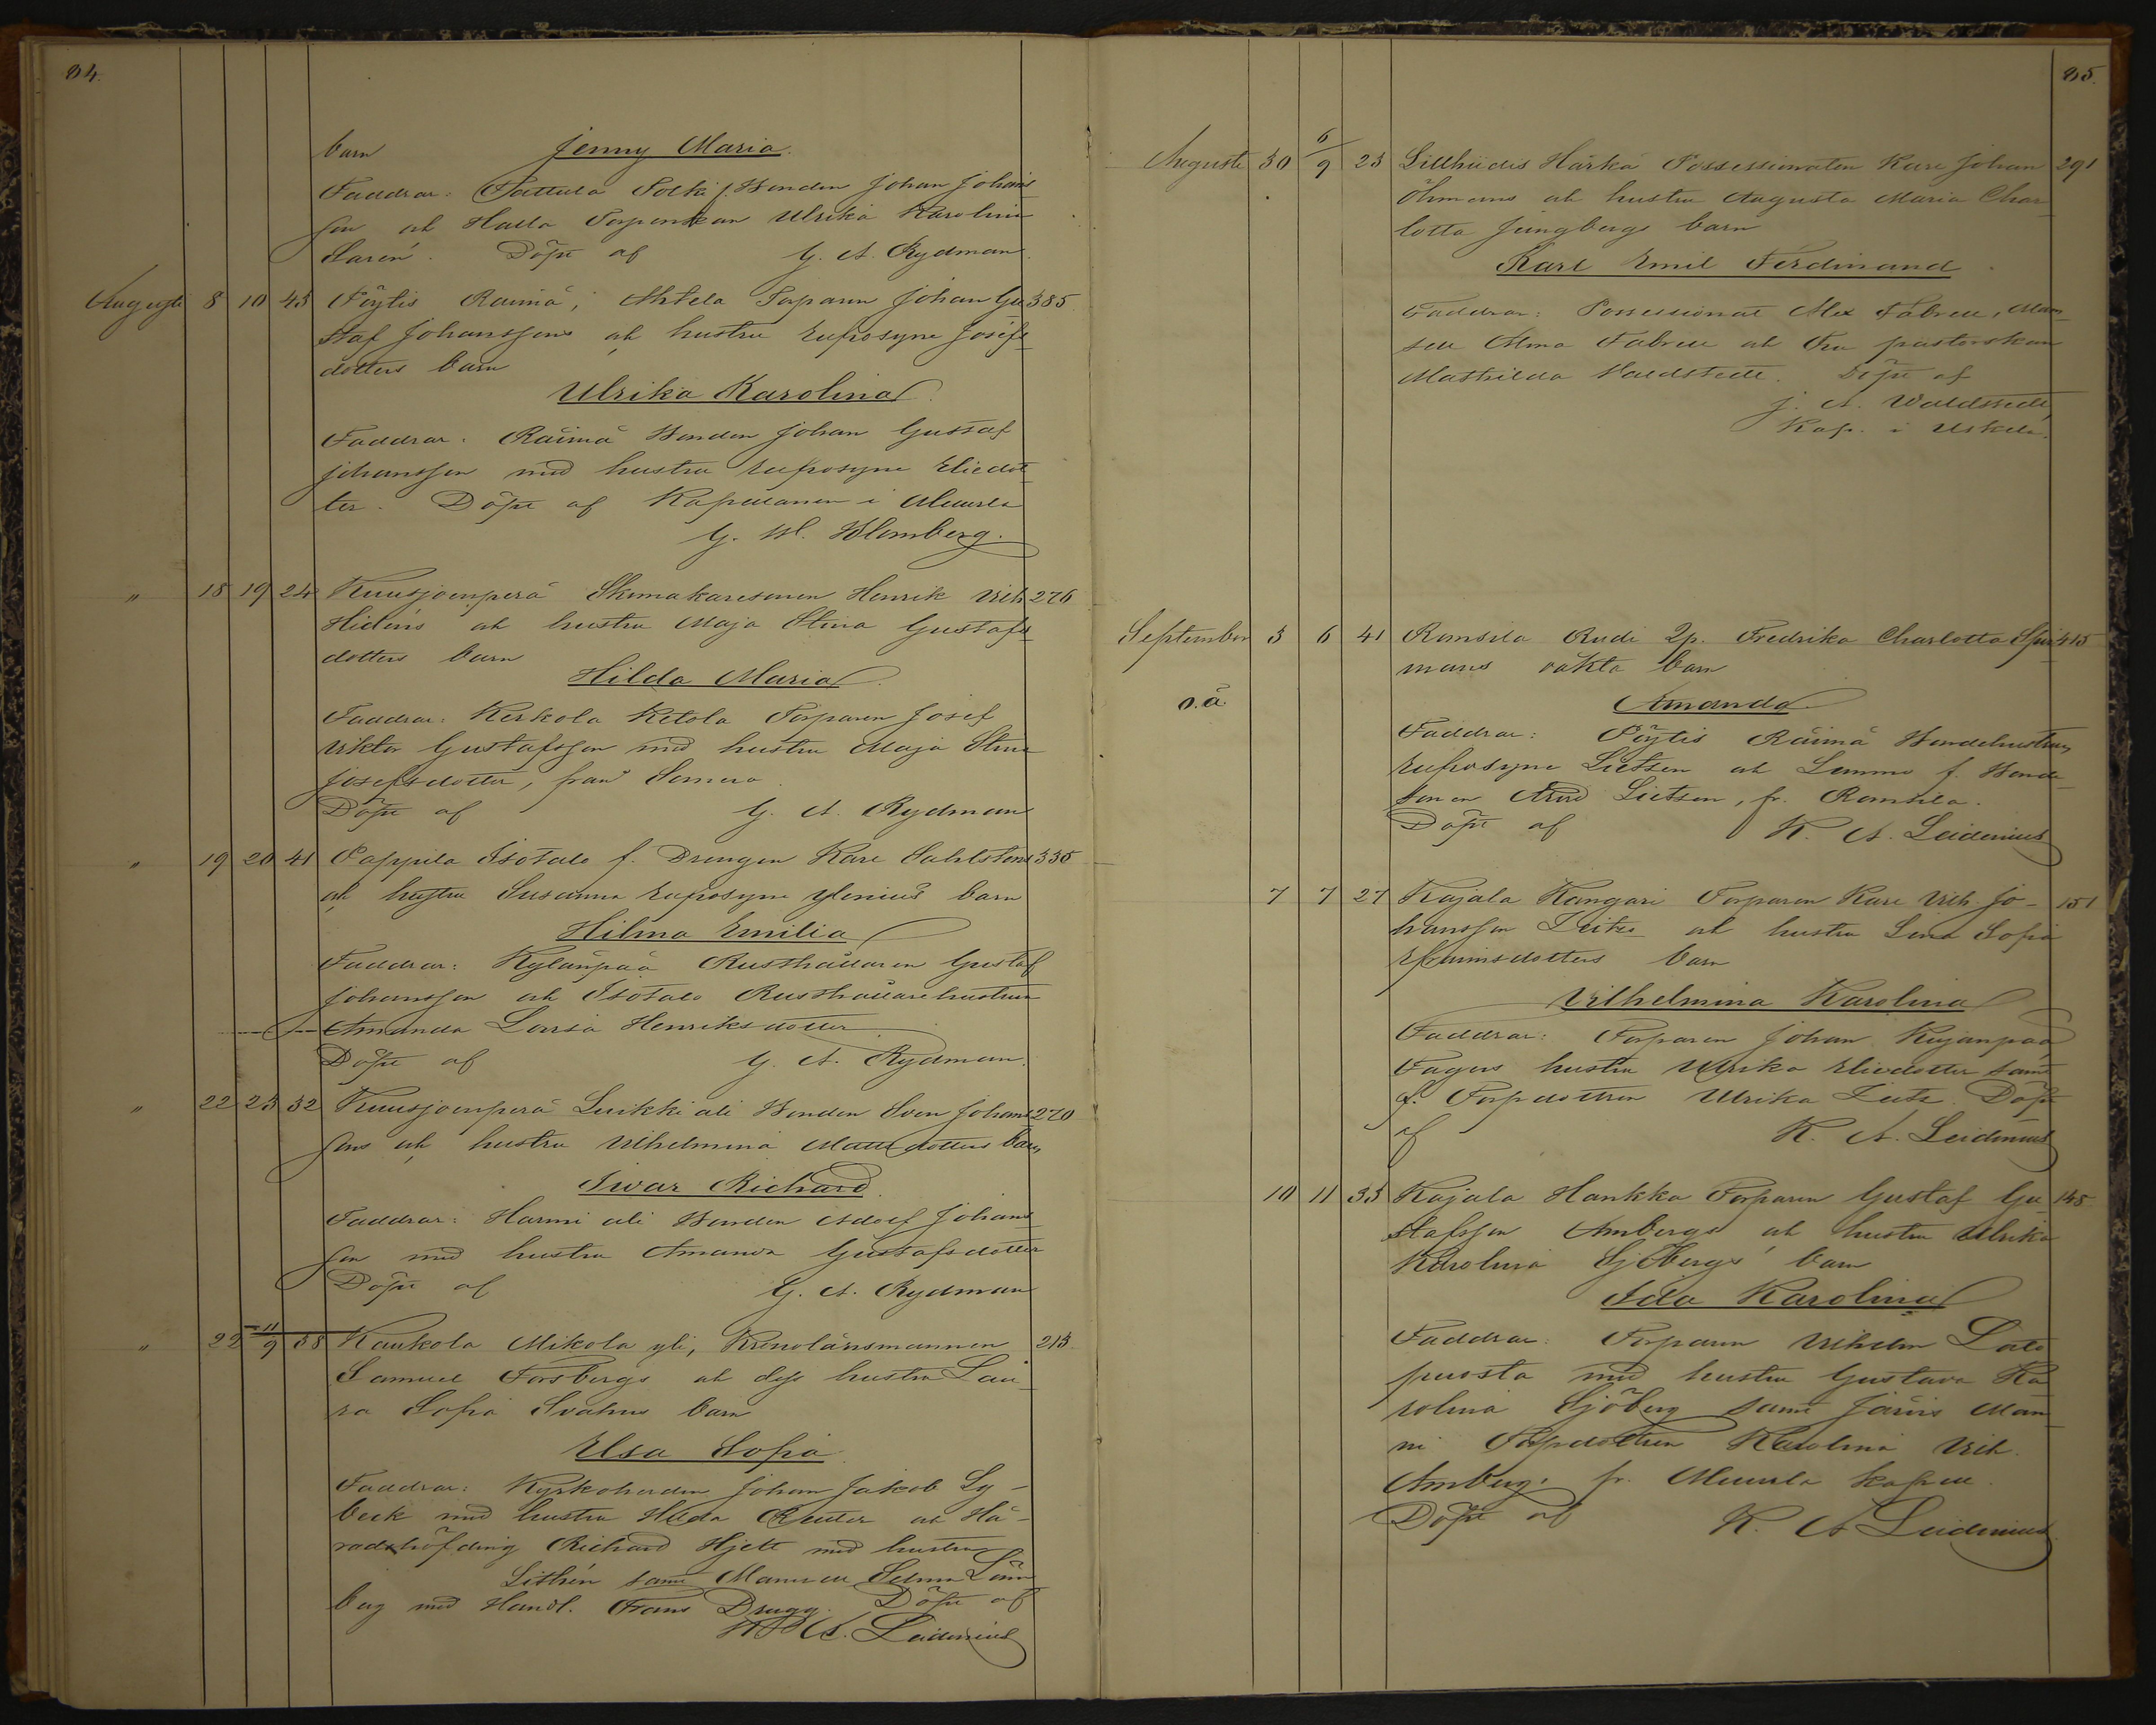 84.
barn Jenny Maria.
Faddrar: Pattula Polki f. Bonden Johan Johans
son och Halla Torpenskan Ulrika Karolina
Saren. Döpt af G. A. Rydman.
Augusti 8 10 43 Pöytis Raimä, Ahtela Torparen Johan Gu 385
staf Johanssons och hustru Eufrosyne Josefs
dotters barn
Ulrika Karolina.
Faddrar: Räimä Bonden Johan Gustaf
Johansson med hustru Eufrosyne Eliedot
ter. Döpt af Kapellanen i Muurla
G. W. Blomberg.
" 18 19 24 Kuusjoenperä Skomakaresonen Henrik Vilh 276
Hidéns och hustru Maja Stina Gustafs
dotters barn
Hilda Maria.
Faddrar: Kerkola Ketola Torparen Josef
Viktor Gustafsson med hustru Maja Stina
Josefsdotter, från Somero
Döpt af G. A. Rydman
" 19 20 41 Pappila Isotalo f. Drengen Karl Sahlstens 335
och hustru Susanna Eufrosyne Ylenius barn
Hilma Emilia
Faddrar: Kylänpää Rusthållaren Gustaf
Johansson och Isotalo Rusthållarehustrun
Amanda Lovisa Henriksdotter
Döpt af G. A. Rydman.
" 22 23 32 Kuusjoenperä Luikki ali Bonden Sven Johans 270
sons och hustru Vilhelmina Mattsdotters barn
Ivar Richard.
Faddrar: Harmi ali Bonden Adolf Johans
son med hustru Amanda Gustafsdotter
Döpt af G. A. Rydman
" 22 11/9 38 Kaukola Mikola yli, Kronolänsmannen 213
Samuel Forsbergs och dess hustru Lau
ra Sofia Svahns barn
Elsa Sofia
Faddrar: Kyrkoherden Johan Jakob Ly-
beck med hustru Hilda Reuter och Hä-
radshöfding Richard Hjelt med hustru
Lithén samt Mamsell Selma Lönn
berg med Handl. Frans Drugg. Döpt af
K. A. Leidenius
85.
Augusti 30 6/9 23 Lillhiidis Härkä Possessionaten Karl Johan 291
Öhmans och hustru Augusta Maria Char
lotta Ljungbergs barn
Karl Emil Ferdinand.
Faddrar: Possessionat Alex Fabrell, Mam
sell Alma Fabrell och Fru pastorskan
Mathilda Valdstedt. Döpt af
J. A. Waldstedt,
Kap. i Uskela.
September 3 6 41 Romsila Rudi Qp. Fredrika Charlotta Spir 415
mans oäkta barn
o.ä. Amanda.
Faddrar: Pöytis Räimä Bondehustrun
Eufrosyne Lietzen och Lammo f. Bonde
sonen Arvid Lietzen, fr. Romsila.
Döpt af K. A. Leidenius
7 7 27 Kajala Kangari Torparen Karl Vilh. Jo- 151
hansson Leitzs och hustru Lena Sofia
Efraimsdotters barn
Vilhelmina Karolina
Faddrar: Torparen Johan Kujanpää
Fagers hustru Ulrika Eliedotter samt
f. Torpdottren Ulrika Leitz. Döpt
af K. A. Leidenius
10 11 33 Kajala Hankka Torparen Gustaf Gu 148
stafsson Ambergs och hustru Ulrika
Karolina Sjöbergs barn
Ida Karolina
Faddrar: Torparen Vilhelm Lato
puosta med hustru Gustava Ka
rolina Sjöberg samt Järvis Man
ni Torpdottren Karolina Vilh.
Amberg, fr. Muurla kapell.
Döpt af K. A Leidenius